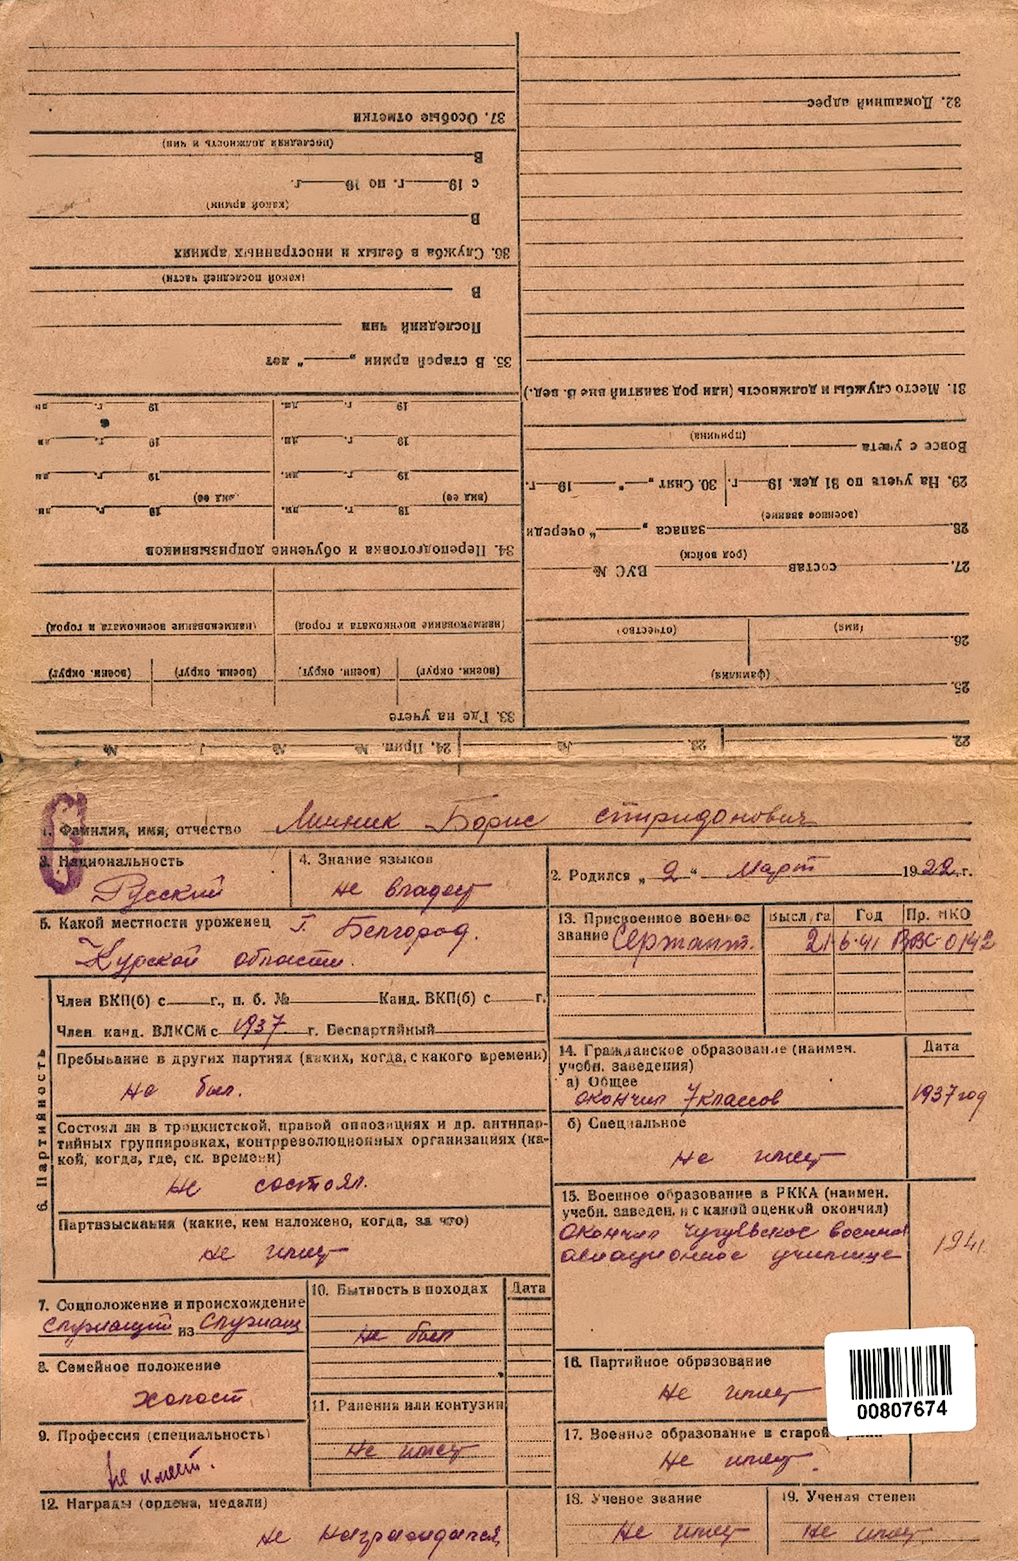 37. Особые отметки
(последняя должность и чин)
В
с 19 г. по 19 г.
(какой армии)
В
36. Служба в белых и иностранных армиях
(какой последней части)
В
Последний чин
35. В старой армии „ “ лет
19 г. дн. 19 г. дн
19 г. дн. 19 г. дн
19 г. дн. 19 г. дн
(вид ее) (вид ее)
19 г. дн. 19 г. дн
34. Переподготовка и обучение допризывников
(наименование военкомата и город) (наименование военкомата и город)
(воен. округ) (воен. округ) (воен. округ) (воен. округ)
33. Где на учете
24. Прип. № № №
32. Домашний адрес
31. Место службы и должность (или род занятий вне В. вед.)
(причина)
Вовсе с учета
29. На учете по 31 дек. 19 г. 30. Снят „ “ 19 г.
(военное звание)
28. запаса „ “ очереди
(род войск)
27. состав ВУС №
(имя) (отчество)
26.
(фамилия)
25.
22. 23. №
1. Фамилия, имя, отчество Линник Борис Спиридонович
3. Национальность
Русский
4. Знание языков
не владеет
2. Родился „ 2 “ Март 1922 г.
5. Какой местности уроженец г. Белгород.
Курской области.
13. Присвоенное военное
звание Сержант.
Высл, га Год Пр. НКО
21 6.41 ВВС-0142
6. Партийность
Член ВКП(б) с г., п. б. № Канд. ВКП(б) с г.
Член канд. ВЛКСМ с 1937 г. Беспартийный
Пребывание в других партиях (каких, когда, с какого времени)
не был.
Состоял ли в троцкистской, правой оппозициях и др. антипар-
тийных группировках, контрреволюционных организациях (ка-
кой, когда, где, ск. времени)
не состоял.
Партвзыскания (какие, кем наложено, когда, за что)
не имеет
14. Гражданское образование (наимен.
учебн. заведения)
Дата
а) Общее
окончил 7 классов 1937 год
б) Специальное
не имеет
15. Военное образование в РККА (наимен.
учебн. заведен. и с какой оценкой окончил)
окончил Чугуевское военное
авиационное училище 1941
7. Соцположение и происхождение
служащий из служащ
8. Семейное положение
холост
9. Профессия (специальность)
не имеет.
10. Бытность в походах Дата
не был
11. Ранения или контузии
не имеет
12. Награды (ордена, медали)
не награждался
16. Партийное образование
не имеет
00807674
17. Военное образование в старой
не имеет.
18. Ученое звание
не имеет
19. Ученая степен
не имеет